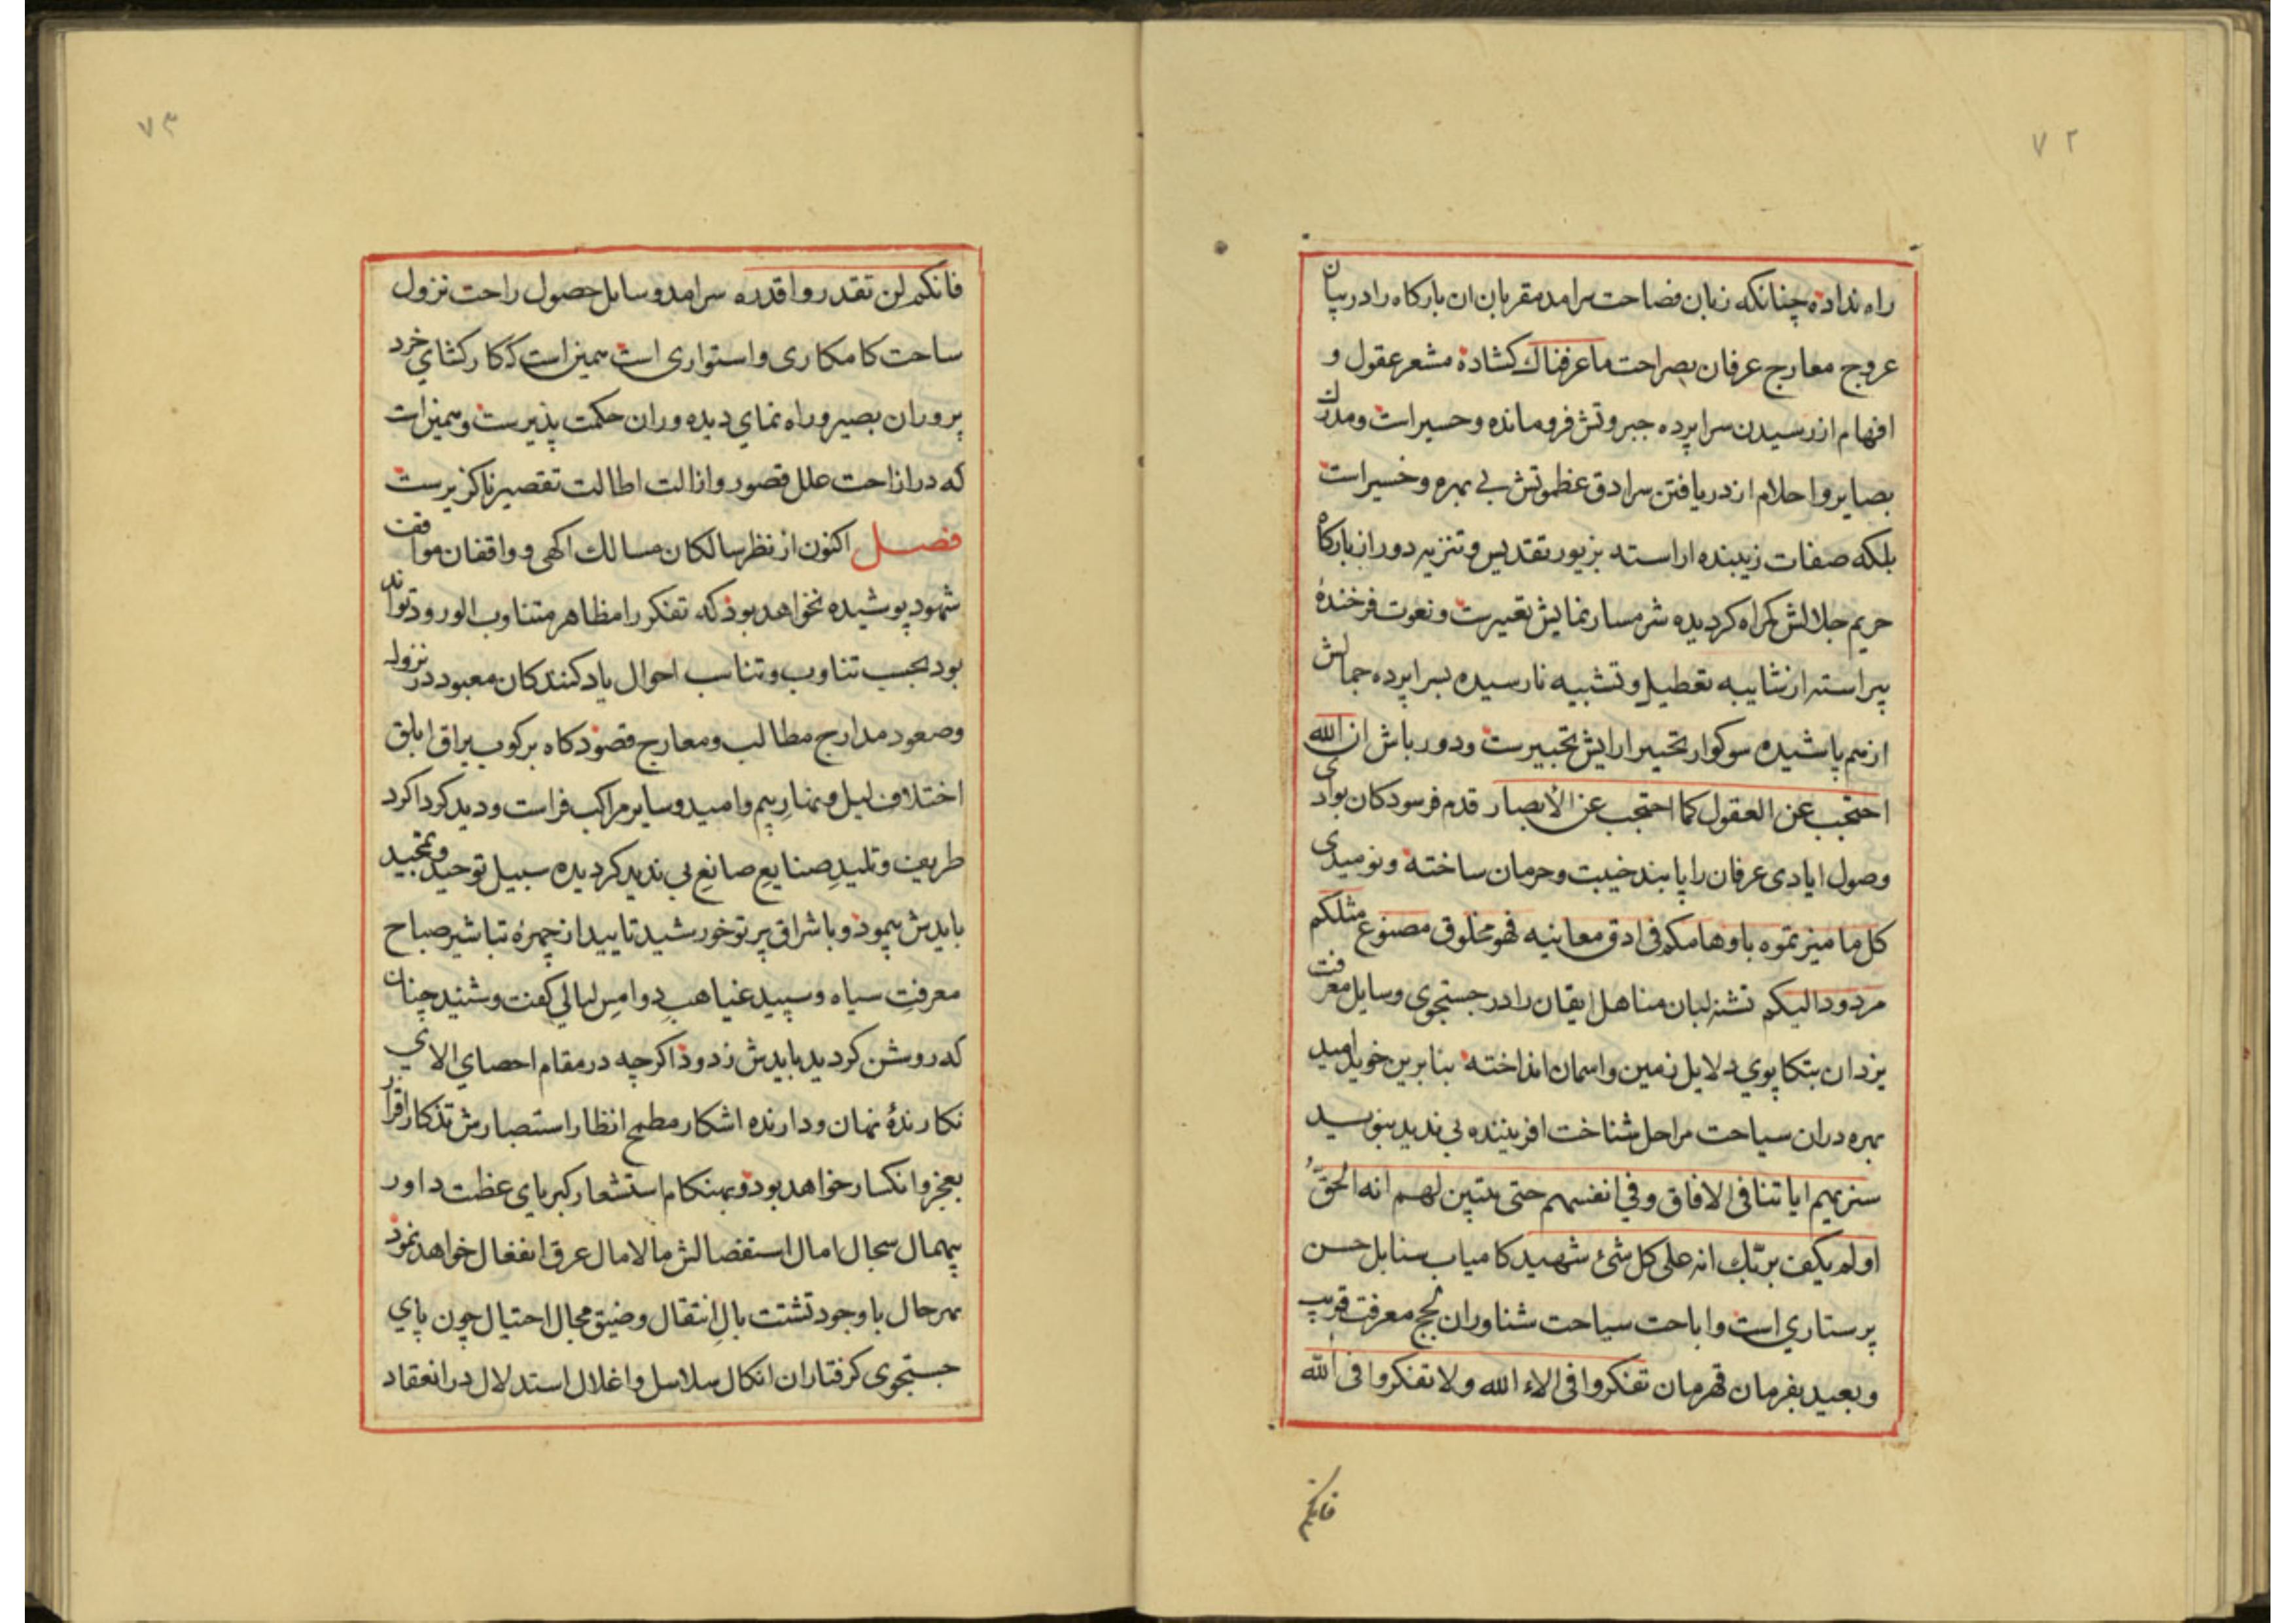 ٧٢
راه نداده چنانکه زبان فصاحت سرامد مقربان ان بارکاه را در بیان
عروج معارج عرفان بصراحت ما عرفناك کشاده مشعر عقول و
افهام از رسیدن سراپرده جبروتش فرومانده و حسیر است و مدرك
بصایر و احلام از دریافتن سرادق عظموتش بی بهره و خسیر است
بلکه صفات زیبنده اراسته بزیور تقدیس و تنزیه دور از بارکاه
حریم جلالش کمراه کردیده شرمسار نمایش تعییرست و نعوت فرخندهٔ
پیراسته از شایبه تعطیل و تشبیه نارسیده بسراپرده جمالش
از هم پاشیده سوکوار تحسیر ارایش تحییرست و دورباش ان الله
احتجب عن العقول کما احتجب عن الأبصار قدم فرسودکان بوادی
وصول ایادی عرفان را پابند خیبت و حرمان ساخته و نومیدی
کل ما میزتموه باوهامکم فی ادق معانیه فهو مخلوق مصنوع مثلکم
مردود الیکم تشنه لبان مناهل ایقان را در جستجوی وسایل معرفت
یزدان بتکاپوی دلایل زمین و اسمان انداخته بنابرین خویل امید
بهره دران سیاحت مراحل شناخت افریننده بی ندید بنوید
سنریهم ایاتنا فی الافاق و فی انفسهم حتی یتبین لهم انه الحقُّ
اولم یکف بربّك انه علی کل شئ شهید کامیاب سنابل حسن
پرستاری است و اباحت سیاحت شناوران لجج معرفت قریب
و بعید بفرمان قهرمان تفکروا فی الاء الله ولا تفکروا فی الله
فانکم
٧٣
فانکم لن تقدروا قدره سرامد وسایل حصول راحت نزول
ساحت کامکاری و استواری است همین است که کارکشای خرد
پروران بصیر و راه نمای دیده وران حکمت پذیرست و همین است
که در ازاحت علل قصور و ازالت اطالت تقصیر ناکزیرست
فصل اکنون از نظر سالکان مسالك اکهی و واقفان مواقف
شهود پوشیده نخواهد بود که تفکر را مظاهر متناوب الورود تواند
بود بحسب تناوب و تناسب احوال یادکنندکان معبود در نزول
و صعود مدارج مطالب و معارج قصود کاه برکوب براق ابلق
اختلاف لیل و نهار بیم و امید و سایر مراکب فراست و دید کرداکرد
طریف و تلیدِ صنایعِ صانعِ بی ندید کردیده سبیل توحید و تمجید
بایدش پیمود و باشراق پرتو خورشید تایید از چهرهٔ تباشیر صباح
معرفتِ سیاه و سپید غیاهبِ دوامسِ لیالی کفت و شنید چنان
که روشن کردید بایدش زدود اکرچه در مقام احصای الای
نکارندهٔ نهان و دارنده اشکار مطمح انظار استبصارش تذکار اقرار
بعجز و انکسار خواهد بود و بهنکام استشعار کبریای عظمت داور
بیهمال سجال امال استفضالش مالامال عرق انفعال خواهد نمود
بهرحال با وجود تشتت بالِ انتقال و ضیق مجال احتیال چون پای
جستجوی کرفتاران انکال سلاسل و اغلال استدلال در انعقاد